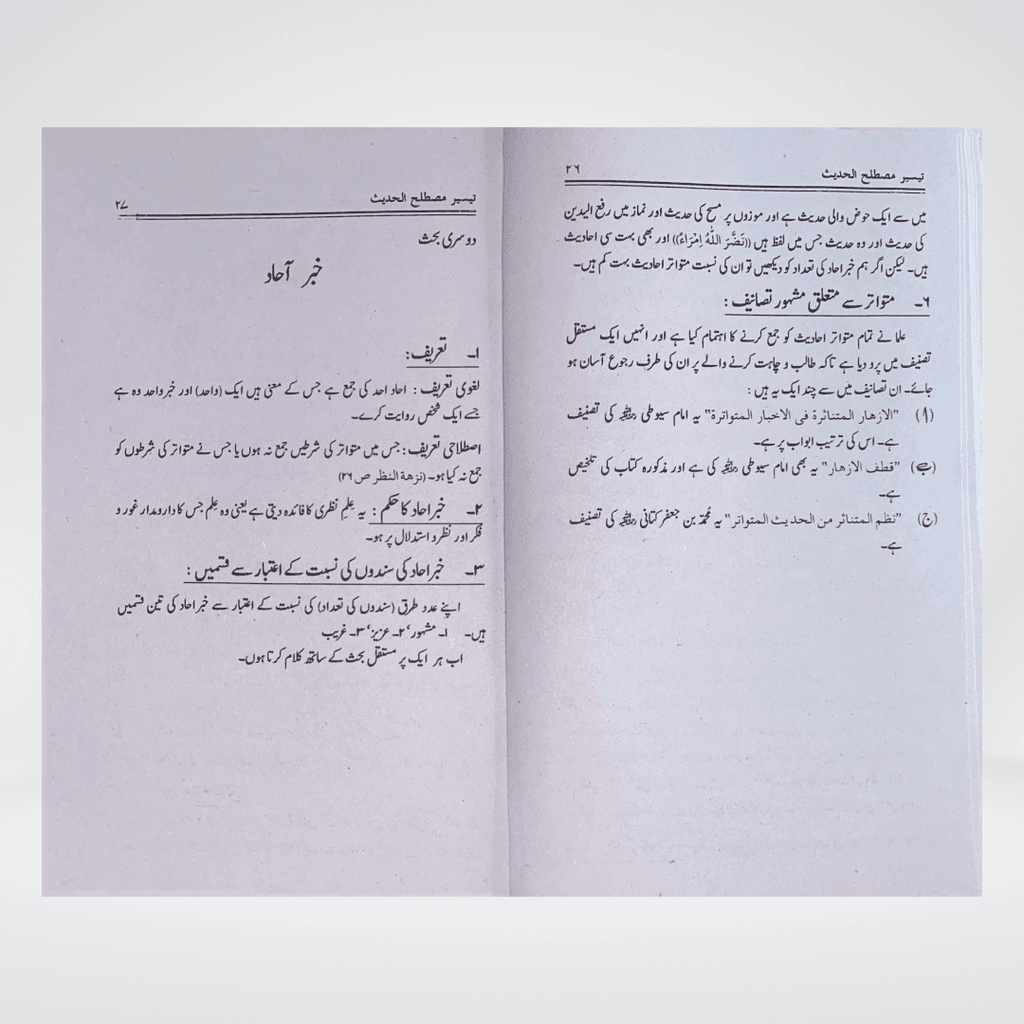 تیسیر مصطلح الحدیث ۲۶
میں سے ایک حوض والی حدیث ہے اور موزوں پر مسح کی حدیث اور نماز میں رفع الیدین
کی حدیث اور وہ حدیث جس میں لفظ ہیں ((نَضَّرَ اللّٰهُ اِمْرَاءً)) اور بھی بہت سی احادیث
ہیں۔ لیکن اگر ہم خبر احاد کی تعداد کو دیکھیں تو ان کی نسبت متواتر احادیث بہت کم ہیں۔
۶۔ متواتر سے متعلق مشہور تصانیف :
علما نے تمام متواتر احادیث کو جمع کرنے کا اہتمام کیا ہے اور انہیں ایک مستقل
تصنیف میں پرو دیا ہے تاکہ طالب و چاہت کرنے والے پر ان کی طرف رجوع آسان ہو
جائے۔ ان تصانیف میں سے چند ایک یہ ہیں :
(ا) "الازهار المتناثرة فی الاخبار المتواترة" یہ امام سیوطی رحمہ اللہ کی تصنیف
ہے۔ اس کی ترتیب ابواب پر ہے۔
(ب) "قطف الازهار" یہ بھی امام سیوطی رحمہ اللہ کی ہے اور مذکورہ کتاب کی تلخیص
ہے۔
(ج) "نظم المتناثر من الحدیث المتواتر" یہ محمد بن جعفر کتانی رحمہ اللہ کی تصنیف
ہے۔
تیسیر مصطلح الحدیث ۲۷
دوسری بحث
خبر آحاد
۱۔ تعریف :
لغوی تعریف : احاد احد کی جمع ہے جس کے معنی ہیں ایک (واحد) اور خبر واحد وہ ہے
جسے ایک شخص روایت کرے۔
اصطلاحی تعریف : جس میں متواتر کی شرطیں جمع نہ ہوں یا جس نے متواتر کی شرطوں کو
جمع نہ کیا ہو۔ (نزهة النظر ص ۲۶)
۲۔ خبر احاد کا حکم : یہ علم نظری کا فائدہ دیتی ہے یعنی وہ علم جس کا دارومدار غور و
فکر اور نظر و استدلال پر ہو۔
۳۔ خبر احاد کی سندوں کی نسبت کے اعتبار سے قسمیں :
اپنے عدد طرق (سندوں کی تعداد) کی نسبت کے اعتبار سے خبر احاد کی تین قسمیں
ہیں۔ ۱۔ مشہور' ۲۔ عزیز' ۳۔ غریب
اب ہر ایک پر مستقل بحث کے ساتھ کلام کرتا ہوں۔